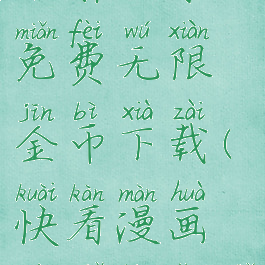 miǎn fèi wú xiàn
免费无限
jīn bì xià zài
金币下载(
kuài kàn màn huà
快看漫画